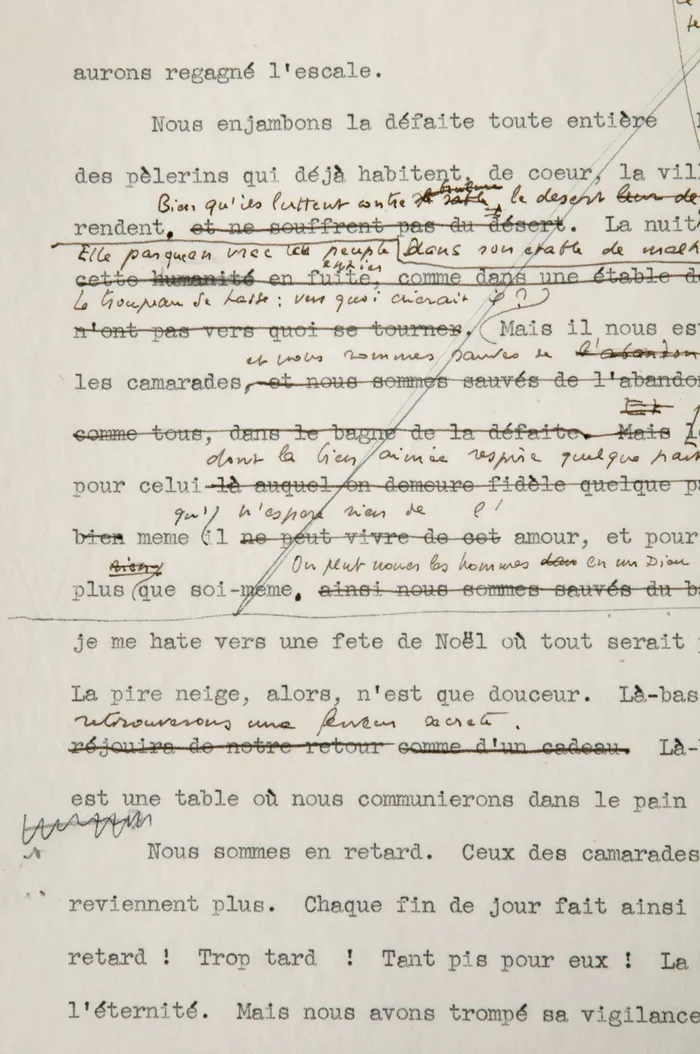 aurons regagné l'escale.
Nous enjambons la défaite toute entière
des pèlerins qui déjà habitent, de coeur, la vill
Bien qu'ils luttent contre le sable, le desert
rendent. et ne souffrent pas du désert. La nuit
Elle parquera vrac peuple dans son étable de
cette humanité en fuite, comme dans une étable d
le troupeau se tasse: vers quoi crierait
n'ont pas vers quoi se tourner. Mais il nous es
et nous sommes sauvés de l'abandon
les camarades, et nous sommes sauvés de l'abando
Et
comme tous, dans le bagne de la défaite. Mais
dont la bien aimée respire quelque part
pour celui-là auquel on demeure fidèle quelque p
qu'il n'espère rien de l'
bien meme il ne peut vivre de cet amour, et pour
On peut nouer les hommes dans en un Dieu
plus que soi-même. ainsi nous sommes sauvés du b
je me hate vers une fete de Noël où tout serait
La pire neige, alors, n'est que douceur. Là-bas
retrouverons une ferveur secrète.
réjouira de notre retour comme d'un cadeau. Là-
est une table où nous communierons dans le pain
Nous sommes en retard. Ceux des camarades
reviennent plus. Chaque fin de jour fait ainsi
retard ! Trop tard ! Tant pis pour eux ! La
l'éternité. Mais nous avons trompé sa vigilance